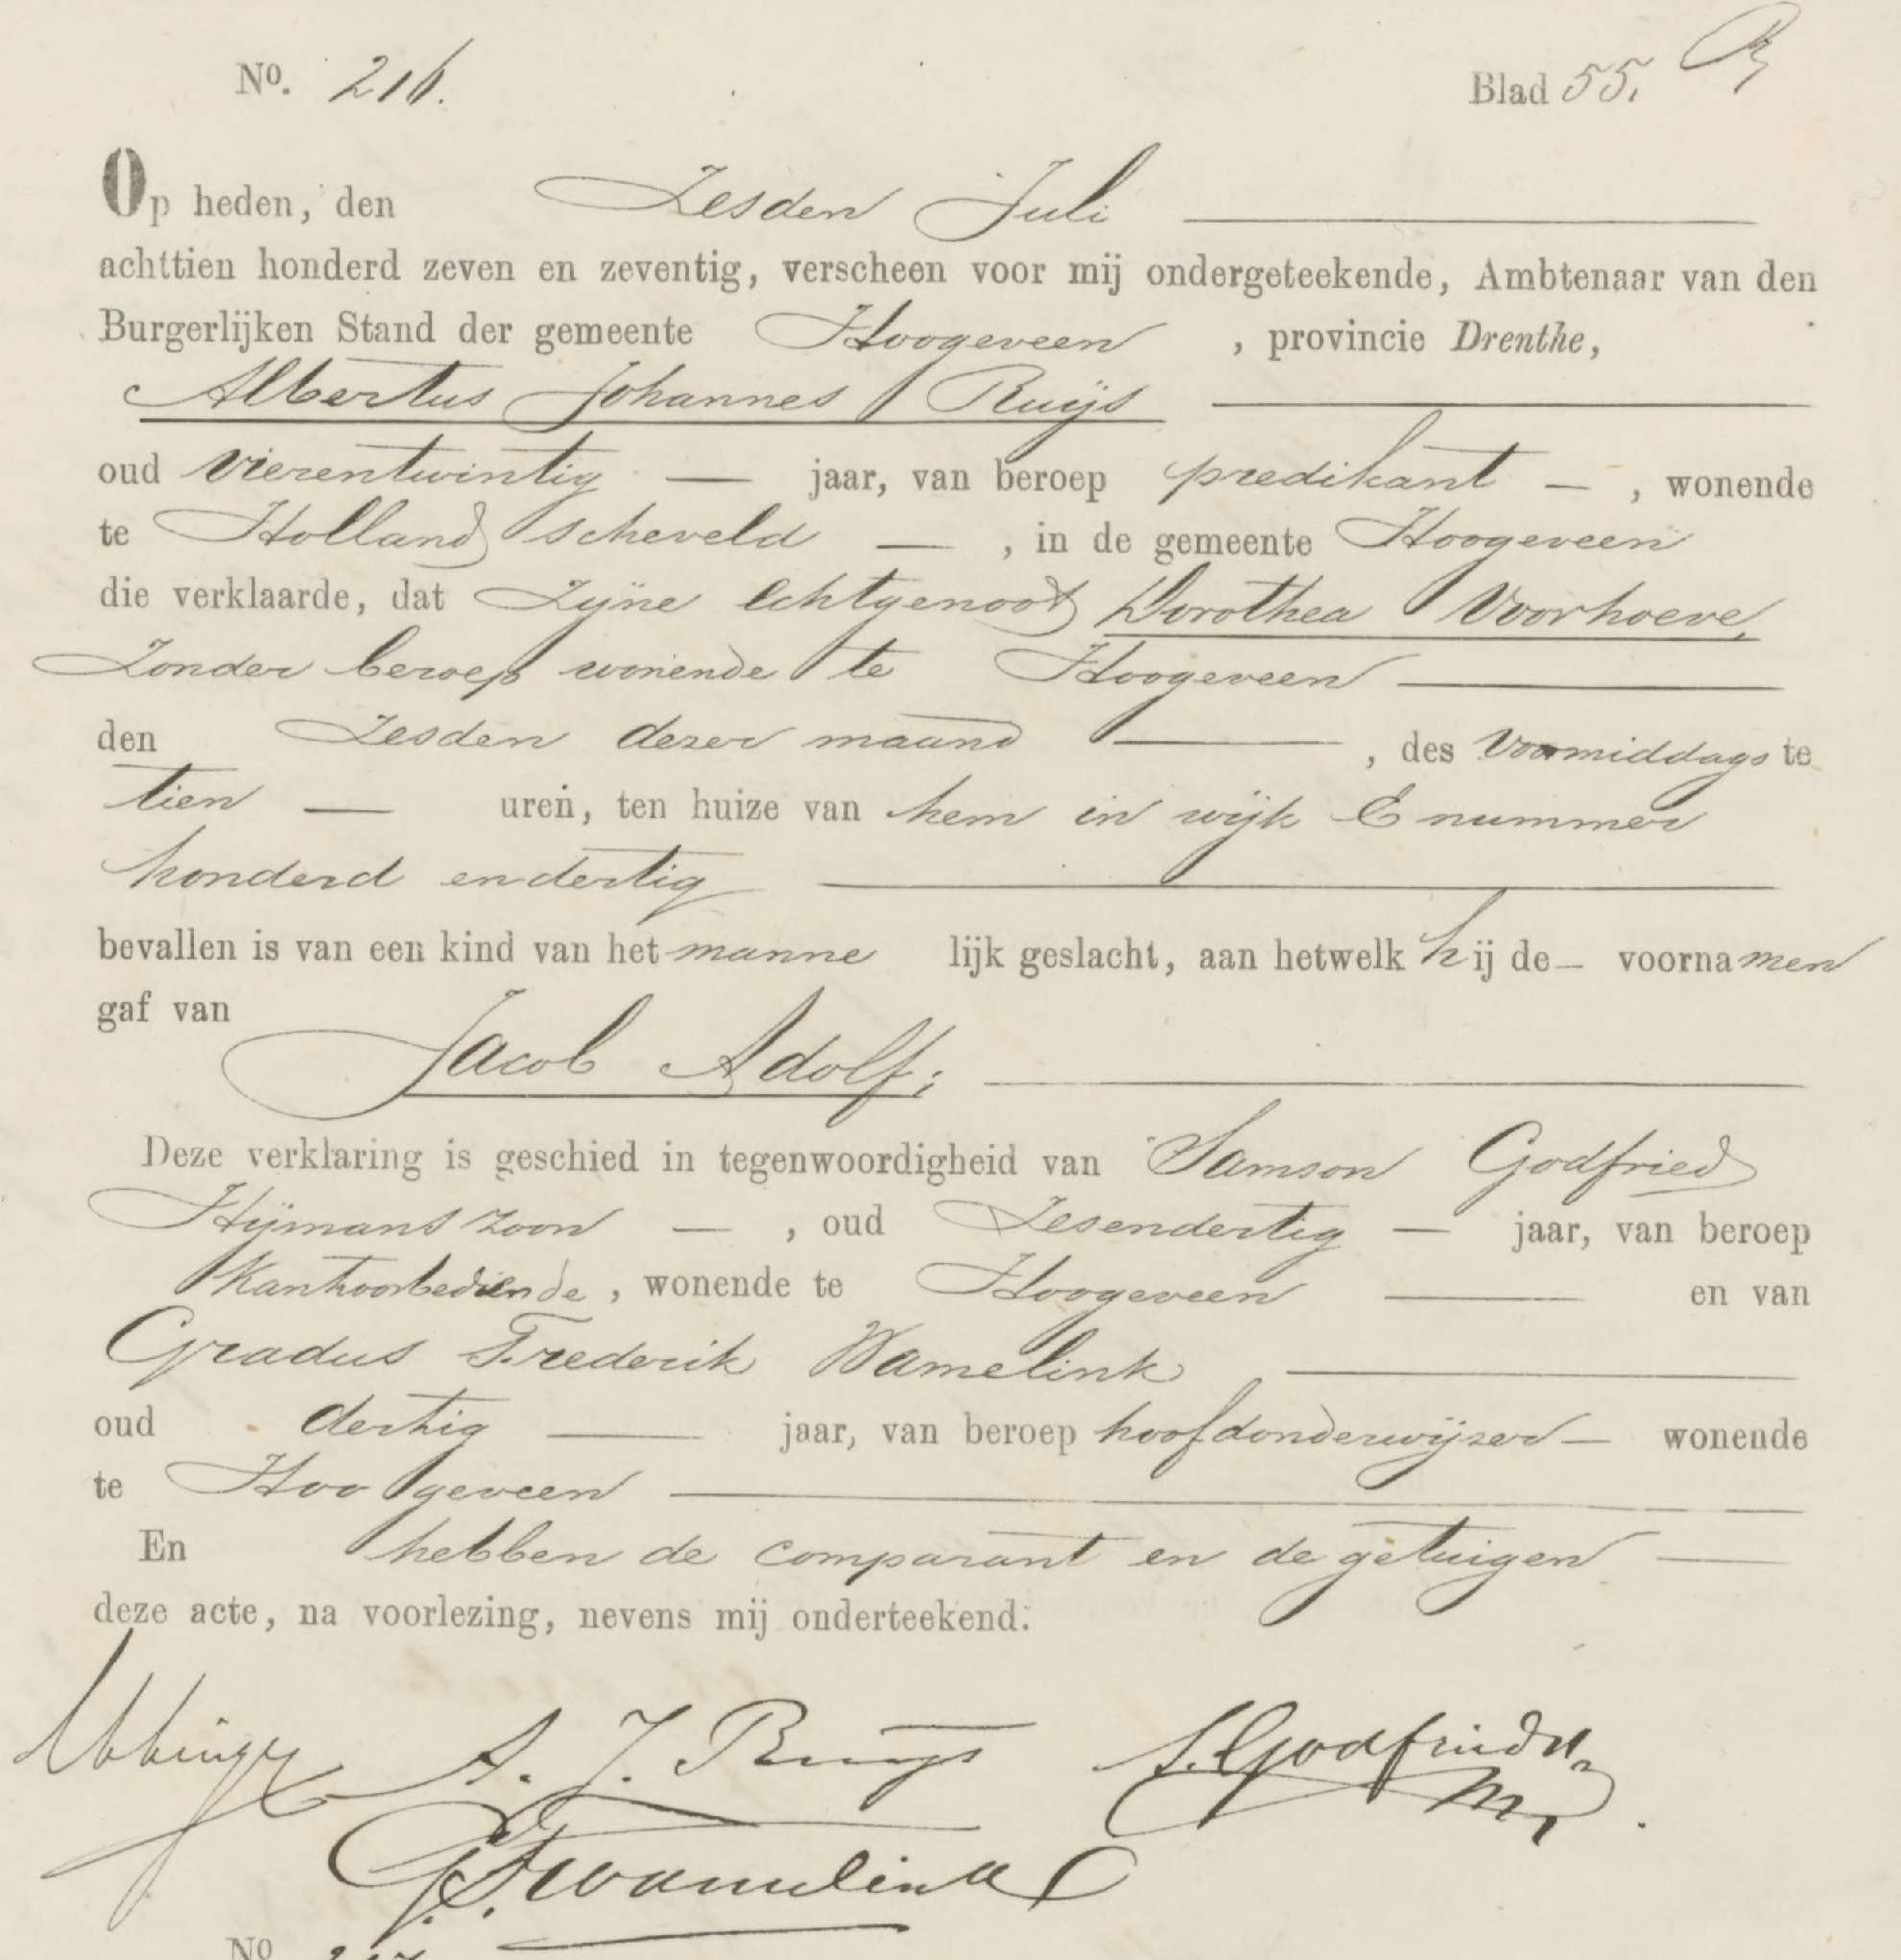 No. 216.
Blad 55.
Op heden, den Zesden Juli
achttien honderd zeven en zeventig, verscheen voor mij ondergeteekende, Ambtenaar van den
Burgerlijken Stand der gemeente Hoogeveen, provincie Drenthe,
Albertus Johannes Ruijs
oud vierentwintig jaar, van beroep predikant, wonende
te Hollandscheveld, in de gemeente Hoogeveen
die verklaarde, dat Zijne Echtgenoot Dorothea Voorhoeve,
Zonder beroep wonende te Hoogeveen
den Zesden dezer maand, des Voormiddags te
tien uren, ten huize van hem in wijk E nummer
honderd en dertig
bevallen is van een kind van het mannelijk geslacht, aan hetwelk hij de voornamen
gaf van
Jacob Adolf;
Deze verklaring is geschied in tegenwoordigheid van Samson Godfried
Hijmanszoon, oud Zesendertig jaar, van beroep
Kantoorbediende, wonende te Hoogeveen en van
Gradus Frederik Wamelink
oud dertig jaar, van beroep hoofdonderwijzer wonende
te Hoogeveen
En hebben de comparant en de getuigen
deze acte, na voorlezing, nevens mij onderteekend.
A. J. Ruijs S. Godfried
G. F. Wamelink
No